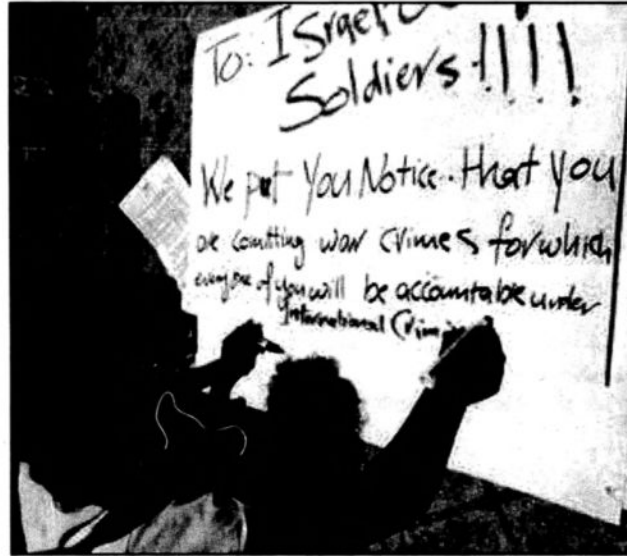 To: Israel
Soldiers!!!!
We put You Notice.. that you
are comtting war crimes for which
every one of you will be accountable under
International